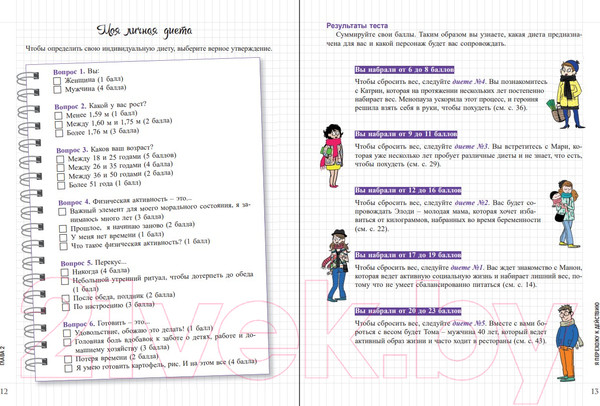 Моя личная диета
Чтобы определить свою индивидуальную диету, выберите верное утверждение.
Вопрос 1. Вы:
Женщина (1 балл)
Мужчина (4 балла)
Вопрос 2. Какой у вас рост?
Менее 1,59 м (1 балл)
Между 1,60 м и 1,75 м (2 балла)
Более 1,76 м (3 балла)
Вопрос 3. Каков ваш возраст?
Между 18 и 25 годами (5 баллов)
Между 26 и 35 годами (4 балла)
Между 36 и 50 годами (2 балла)
Более 51 года (1 балл)
Вопрос 4. Физическая активность – это...
Важный элемент для моего морального состояния, я за-
нимаюсь много лет (3 балла)
Прошлое, я начинаю заново (2 балла)
У меня нет времени (1 балл)
Что такое физическая активность? (1 балл)
Вопрос 5. Перекус...
Никогда (4 балла)
Небольшой утренний ритуал, чтобы дотерпеть до обеда
(1 балл)
После обеда, полдник (2 балла)
По настроению (3 балла)
Вопрос 6. Готовить – это...
Удовольствие, обожаю это делать! (1 балл)
Головная боль вдобавок к заботе о детях, работе и до-
машнему хозяйству (3 балла)
Потеря времени (2 балла)
Я умею готовить картофель, рис. И на этом все (4 балла)
ГЛАВА 2
12
Результаты теста
Суммируйте свои баллы. Таким образом вы узнаете, какая диета предназна-
чена для вас и какой персонаж будет вас сопровождать.
Вы набрали от 6 до 8 баллов
Чтобы сбросить вес, следуйте диете №4. Вы познакомитесь
с Катрин, которая на протяжении нескольких лет постепенно
набирает вес. Менопауза ускорила этот процесс, и героиня
решила взять себя в руки, чтобы похудеть (см. с. 36).
Вы набрали от 9 до 11 баллов
Чтобы сбросить вес, следуйте диете №3. Вы встретитесь с Мари, ко-
торая уже несколько лет пробует различные диеты и не знает, что есть,
чтобы похудеть (см. с. 29).
Вы набрали от 12 до 16 баллов
Чтобы сбросить вес, следуйте диете №2. Вас будет со-
провождать Элоди – молодая мама, которая хочет изба-
виться от килограммов, набранных во время беременности
(см. с. 22).
Вы набрали от 17 до 19 баллов
Чтобы сбросить вес, следуйте диете №1. Вас ждет знакомство с Манон,
которая ведет активную социальную жизнь и набирает лишний вес, по-
тому что не умеет сбалансированно питаться (см. с. 14).
Вы набрали от 20 до 23 баллов
Чтобы сбросить вес, следуйте диете №5. Вместе с вами бо-
роться с весом будет Тома – мужчина 40 лет, который ведет
активный образ жизни и часто ходит в рестораны (см. с. 43).
Я ПЕРЕХОЖУ К ДЕЙСТВИЮ
13
21vek.by